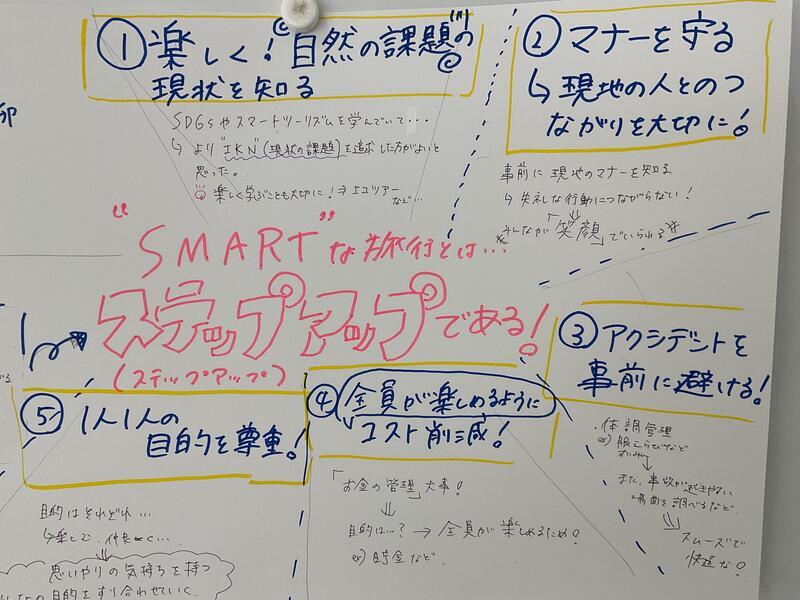 卯
① 楽しく！自然の課題の
現状を知る
SDGsやスマートツーリズムを学んでいて…
↳ より"IKN"(現状の課題)を追求した方がよいと
思った。
楽しく学ぶことも大切に！⇒エコツアー
など…
② マナーを守る
↳ 現地の人とのつ
ながりを大切に！
事前に現地のマナーを知る
↳ 失礼な行動につながらない！
みんなが「笑顔」でいられる
"SMART"な旅行とは…
ステップアップである！
(ステップアップ)
③ アクシデントを
事前に避ける！
・体調管理
ex) 服えらびなど
また、事故が起きやすい
場面を調べるなど
スムーズで
快適な！
④ 全員が楽しめるように
コスト削減！
「お金の管理」大事！
目的は…？→全員が楽しめるため！
ex) 貯金など
⑤ 1人1人の
目的を尊重！
目的はそれぞれ…
思いやりの気持ちを持つ
の目的をすり合わせていく